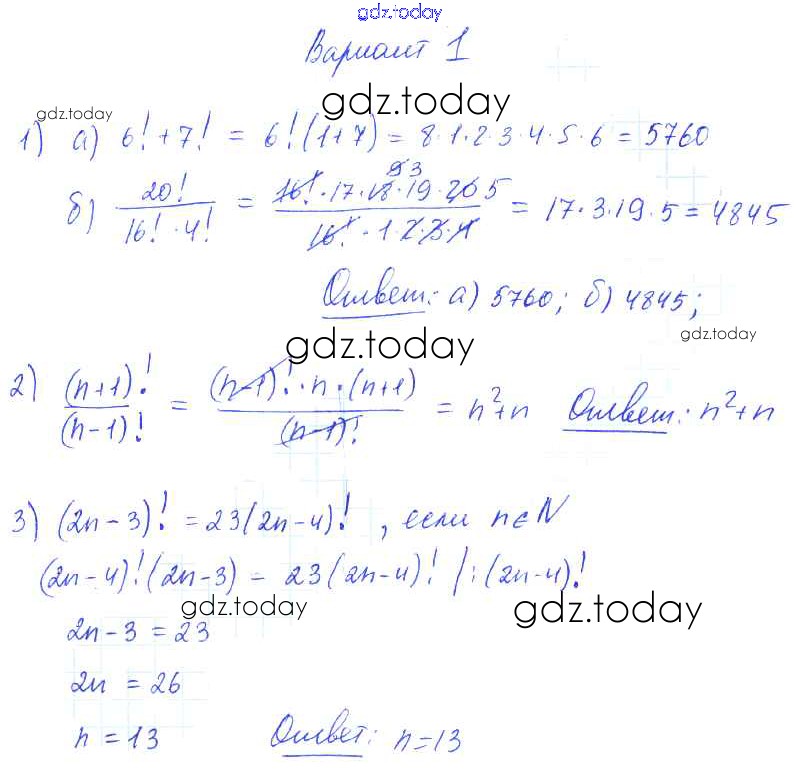 gdz.today
Вариант 1
gdz.today
gdz.today
1) а) 6! + 7! = 6! (1+7) = 8·1·2·3·4·5·6 = 5760
б) 20! / 16!·4! = 16!·17·18·19·20 / 16!·1·2·3·4 = 17·3·19·5 = 4845
Ответ: а) 5760; б) 4845;
gdz.today
gdz.today
2) (n+1)! / (n-1)! = (n-1)!·n·(n+1) / (n-1)! = n²+n Ответ: n²+n
3) (2n-3)! = 23(2n-4)!, если n∈N
(2n-4)!(2n-3) = 23(2n-4)! /:(2n-4)!
gdz.today
gdz.today
2n-3 = 23
2n = 26
n = 13 Ответ: n=13